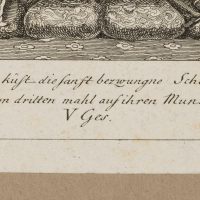 küst die sanft bezwungne Sch
n dritten mahl auf ihren Mun
V Ges.